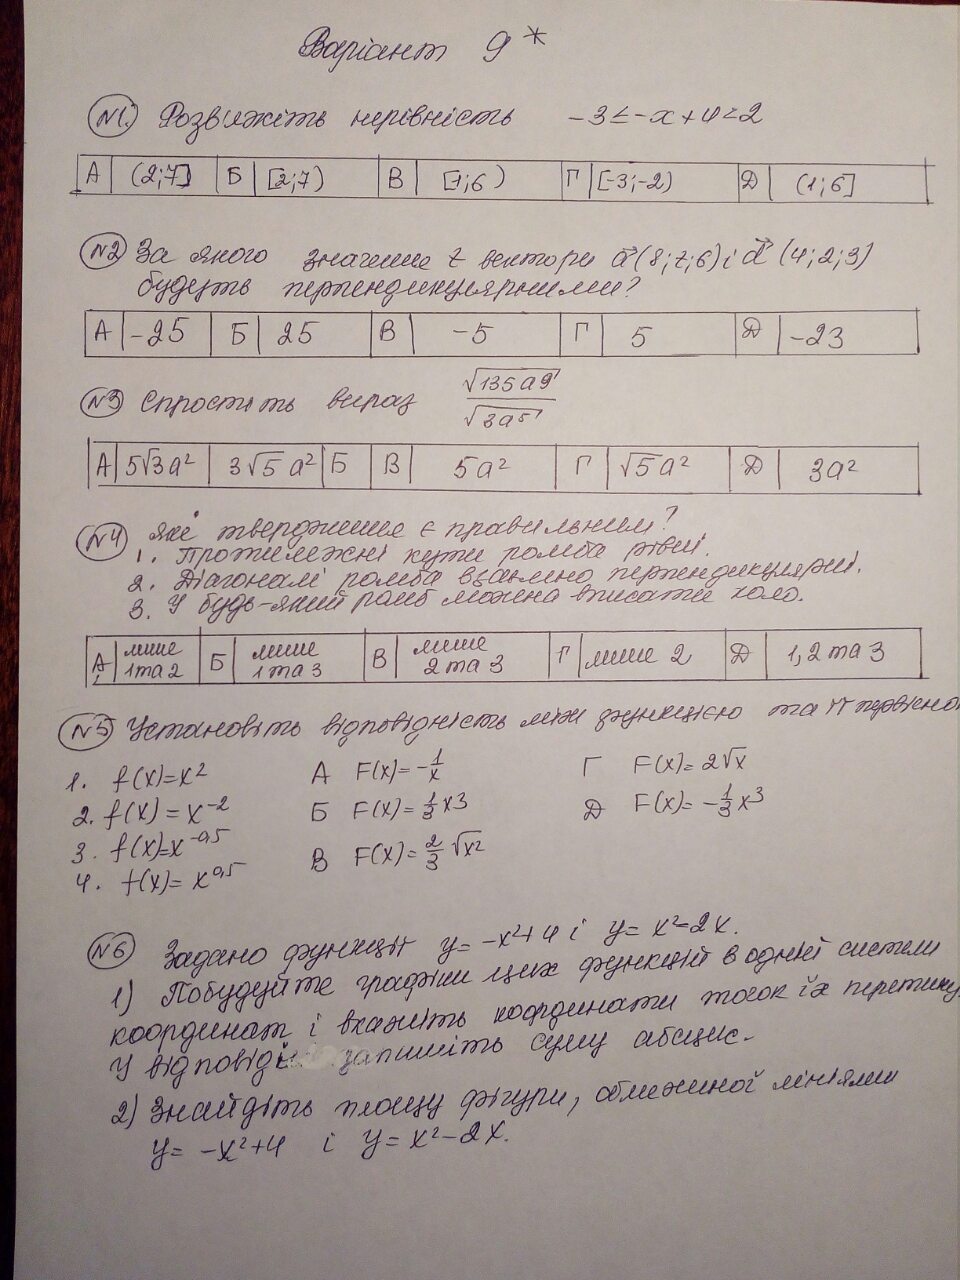 Варіант 9*
№1. Розв'яжіть нерівність -3≤-x+4<2
А (2;7] Б [2;7) В [1;6) Г [-3;-2) Д (1;6]
№2 За якого значення z вектори a⃗(8;z;6) і d⃗(4;2;3)
будуть перпендикулярними?
А -25 Б 25 В -5 Г 5 Д -23
№3 Спростіть вираз √135a9/√3a5
А 5√3a² 3√5a² Б В 5a² Г √5a² Д 3a²
№4 Які твердження є правильним?
1. Протилежні кути ромба рівні.
2. Діагоналі ромба взаємно перпендикулярні.
3. У будь-який ромб можна вписати коло.
А лише 1 та 2 Б лише 1 та 3 В лише 2 та 3 Г лише 2 Д 1, 2 та 3
№5 Установіть відповідність між функцією та її первісно
1. f(x)=x² А F(x)=-1/x Г F(x)=2√x
2. f(x)=x⁻² Б F(x)=1/3x3 Д F(x)=-1/3x3
3. f(x)=x⁻⁰,⁵ В F(x)=2/3√x²
4. f(x)=x⁰,⁵
№6 Задано функції y=-x²+4 і y=x²-2x.
1) Побудуйте графіки цих функцій в одній системі
координат і вкажіть координати точок їх перетину.
У відповіді запишіть суму абсцис.
2) Знайдіть площу фігури, обмеженої лініями
y=-x²+4 і y=x²-2x.